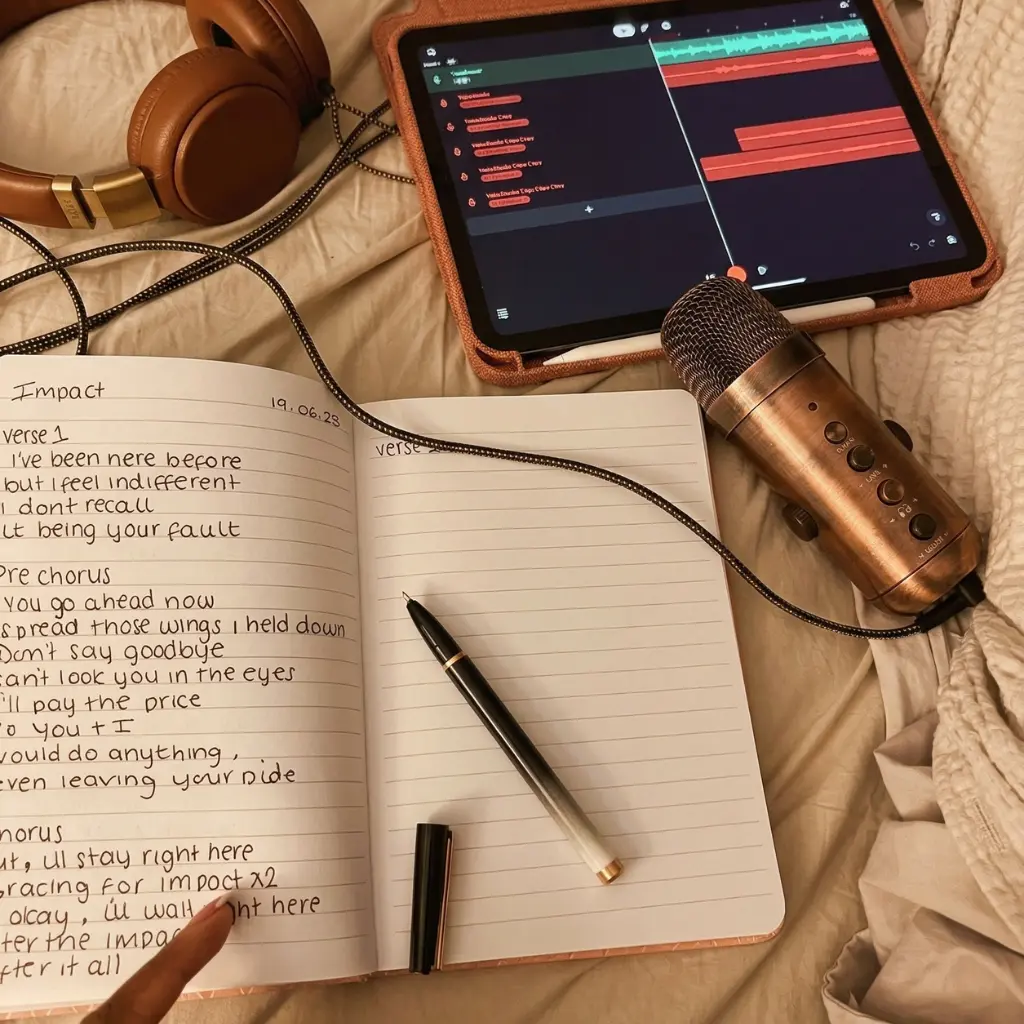 Impact
19.06.23
verse 1
I've been here before
but i feel indifferent
i dont recall
it being your fault
Pre chorus
You go ahead now
spread those wings i held down
Don't say goodbye
can't look you in the eyes
I'll pay the price
You + I
would do anything,
even leaving your side
chorus
but, ill stay right here
bracing for impact x2
okay, ill wait right here
after the impact
after it all
verse